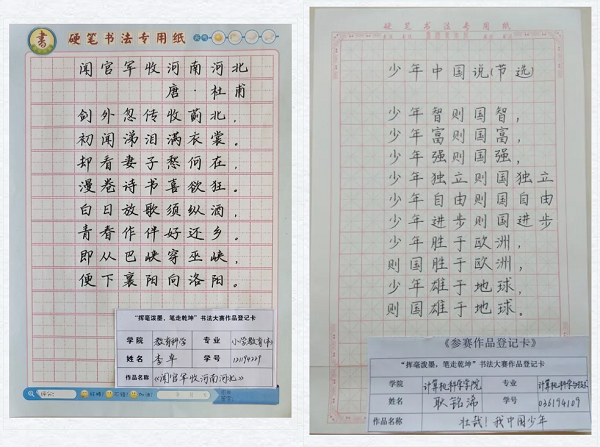 书
硬笔书法专用纸
闻官军收河南河北
唐·杜甫
剑外忽传收蓟北，
初闻涕泪满衣裳。
却看妻子愁何在，
漫卷诗书喜欲狂。
白日放歌须纵酒，
青春作伴好还乡。
即从巴峡穿巫峡，
便下襄阳向洛阳。
“挥毫泼墨，笔走乾坤”书法大赛作品登记卡
学院 教育科学 专业 小学教育
姓名 李卓 学号
作品名称 《闻官军收河南河北》
硬笔书法专用纸
少年中国说(节选)
少年智则国智，
少年富则国富，
少年强则国强，
少年独立则国独立
少年自由则国自由
少年进步则国进步
少年胜于欧洲，
则国胜于欧洲，
少年雄于地球，
则国雄于地球。
《参赛作品登记卡》
“挥毫泼墨，笔走乾坤”书法大赛作品登记卡
学院 计算机科学学院 专业 计算机科学
姓名 耿铭浠 学号 036194109
作品名称 壮哉！我中国少年